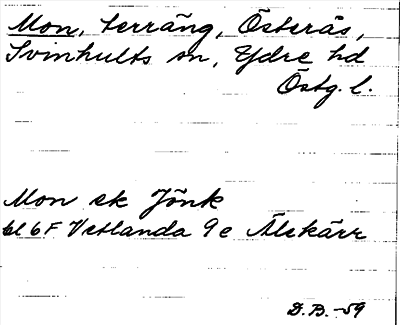 Mon, terräng, Österås,
Svinhults sn, Ydre hd
Östg. l.
Mon ek Jönk
bl 6F Vetlanda 9e Älekärr
D.B.-59